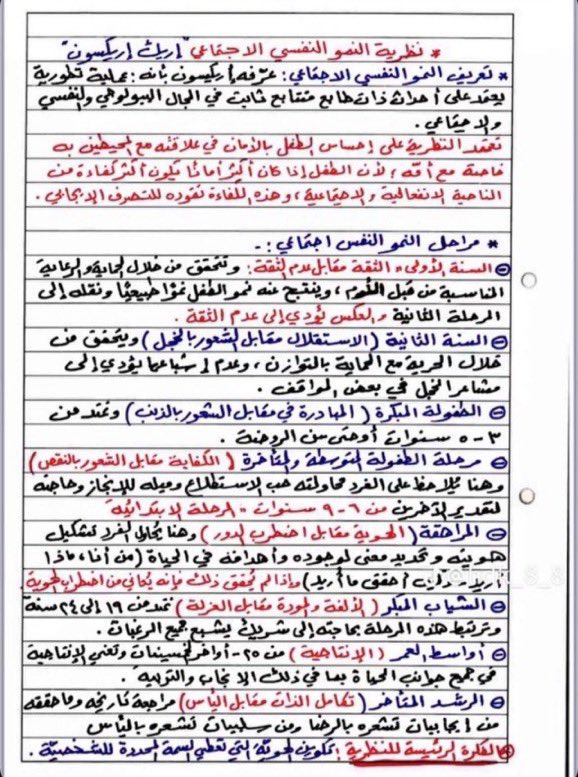 * نظرية النمو النفسي الاجتماعي "إريك إريكسون"
* تعريف النمو النفسي الاجتماعي: عرّفه إريكسون بأنه: عملية تطورية
يعتمد على أحداث ذات طابع متتابع ثابت في المجال البيولوجي والنفسي
والاجتماعي.
تعتمد النظرية على إحساس الطفل بالأمان في علاقته مع المحيطين به
خاصة مع أمّه، لأن الطفل إذا كان أكثر أمانًا يكون أكثر كفاءة من
الناحية الانفعالية والاجتماعية، وهذه الكفاءة تقوده للتصرف الايجابي.
* مراحل النمو النفس اجتماعي :-
السنة الأولى: الثقة مقابل عدم الثقة: وتتحقق من خلال الحماية والرعاية
المناسبة من قبل الأم، وينتج عنه نمو الطفل نموًا طبيعيًا ونقله إلى
المرحلة الثانية والعكس يؤدي إلى عدم الثقة.
السنة الثانية (الاستقلال مقابل الشعور بالخجل) ويتحقق من
خلال الحرية مع الحماية بالتوازن، وعدم إشباعها يؤدي إلى
مشاعر الخجل في بعض المواقف.
الطفولة المبكرة (المبادرة في مقابل الشعور بالذنب) وتمتد من
٣-٥ سنوات أو حتى سن الروضة.
مرحلة الطفولة المتوسطة والمتأخرة (الكفاية مقابل الشعور بالنقص)
وهنا يُلاحظ على الفرد محاولته حب الاستطلاع وميله للإنجاز وحاجته
لتقدير الآخرين من ٦-٩ سنوات - المرحلة الابتدائية
المراهقة (الهوية مقابل اضطرب الدور) وهنا يحاول الفرد تشكيل
هويته وتحديد معنى لوجوده وأهدافه في الحياة (من أنا، ماذا
أريد، أحقق ما أريد) وإذا لم يُحقق ذلك فإنه يُعاني من اضطراب الهوية.
الشباب المبكر (الألفة والمودة مقابل العزلة) تمتد من ١٩ إلى ٢٤ سنة
وترتبط هذه المرحلة بحاجته إلى شريك يشبع جميع الرغبات.
أواسط العمر (الإنتاجية) من ٢٥ - أواخر الخمسينات وتعني الإنتاجية
في جميع جوانب الحياة بما في ذلك الإنجاب والتربية.
الرشد المتأخر (تكامل الذات مقابل اليأس) مراجعة تاريخه وما حققه
من إيجابيات تشعره بالرضا ومن سلبيات تشعره باليأس
* الفكرة الرئيسية للنظرية: تكوين الهوية التي تعطي السمة المحددة للشخصية.